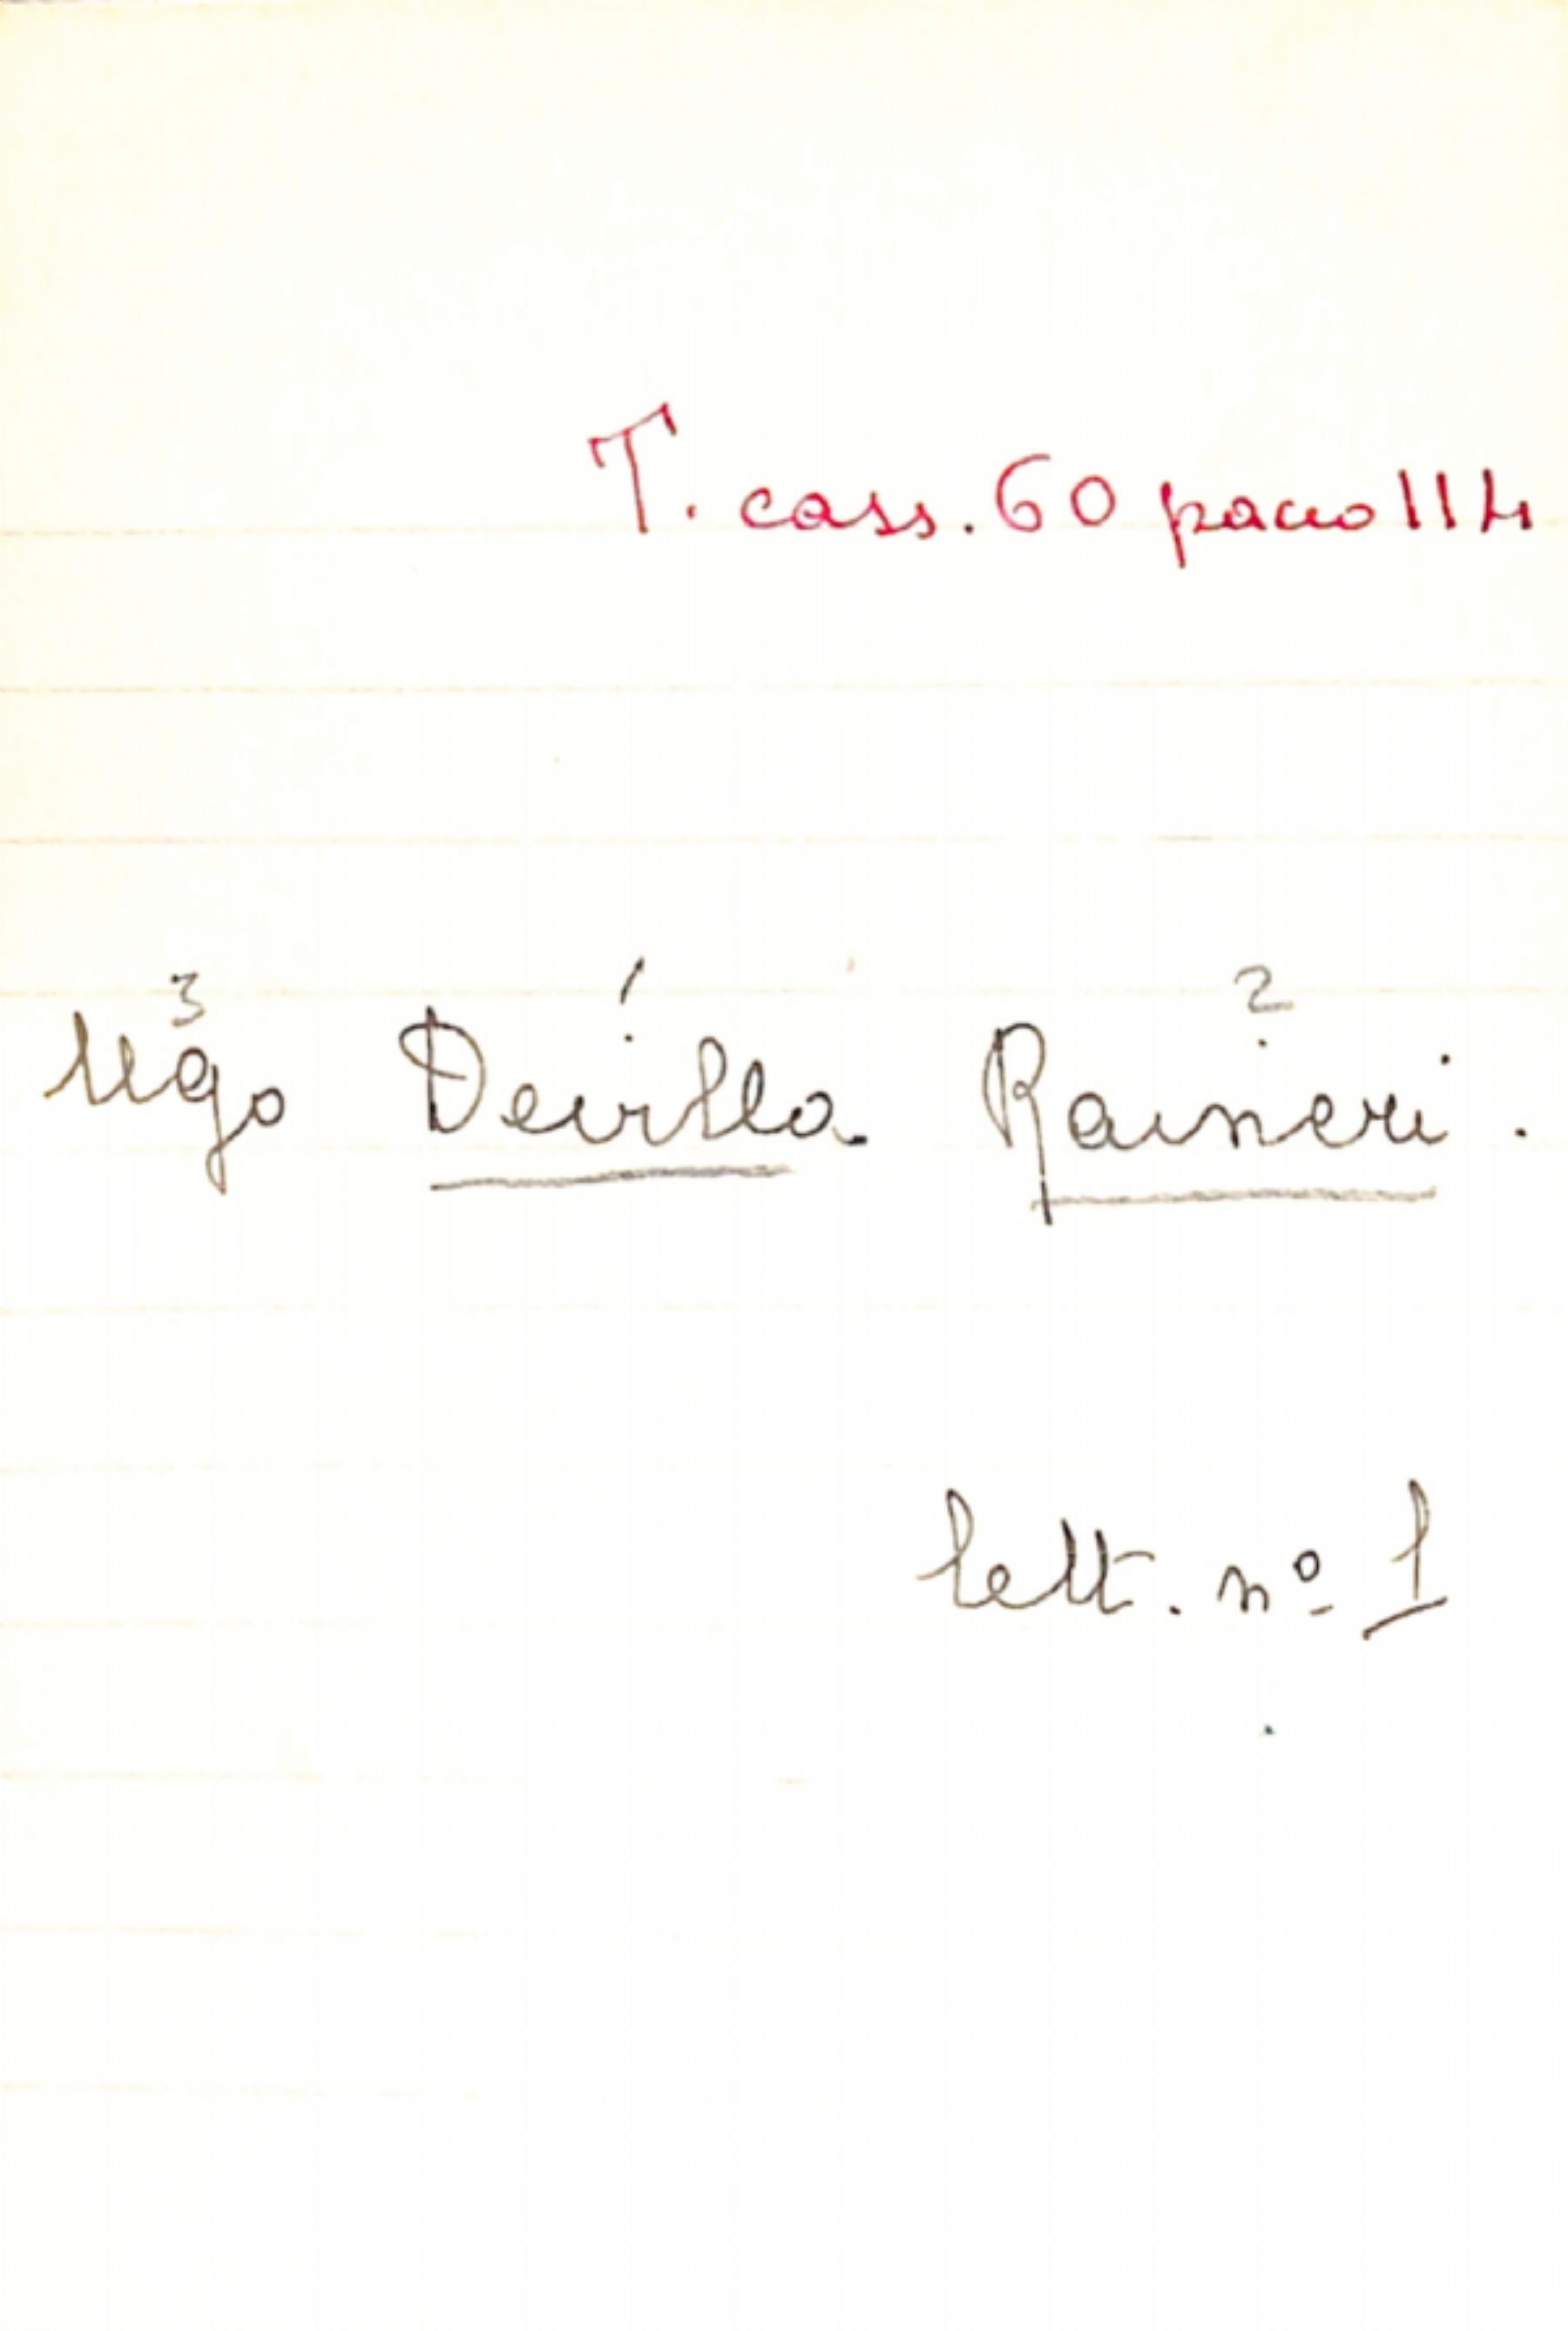 T. cass. 60 pacco 114
3 1 2
Ugo Devilla Raineri.
lett. nº 1